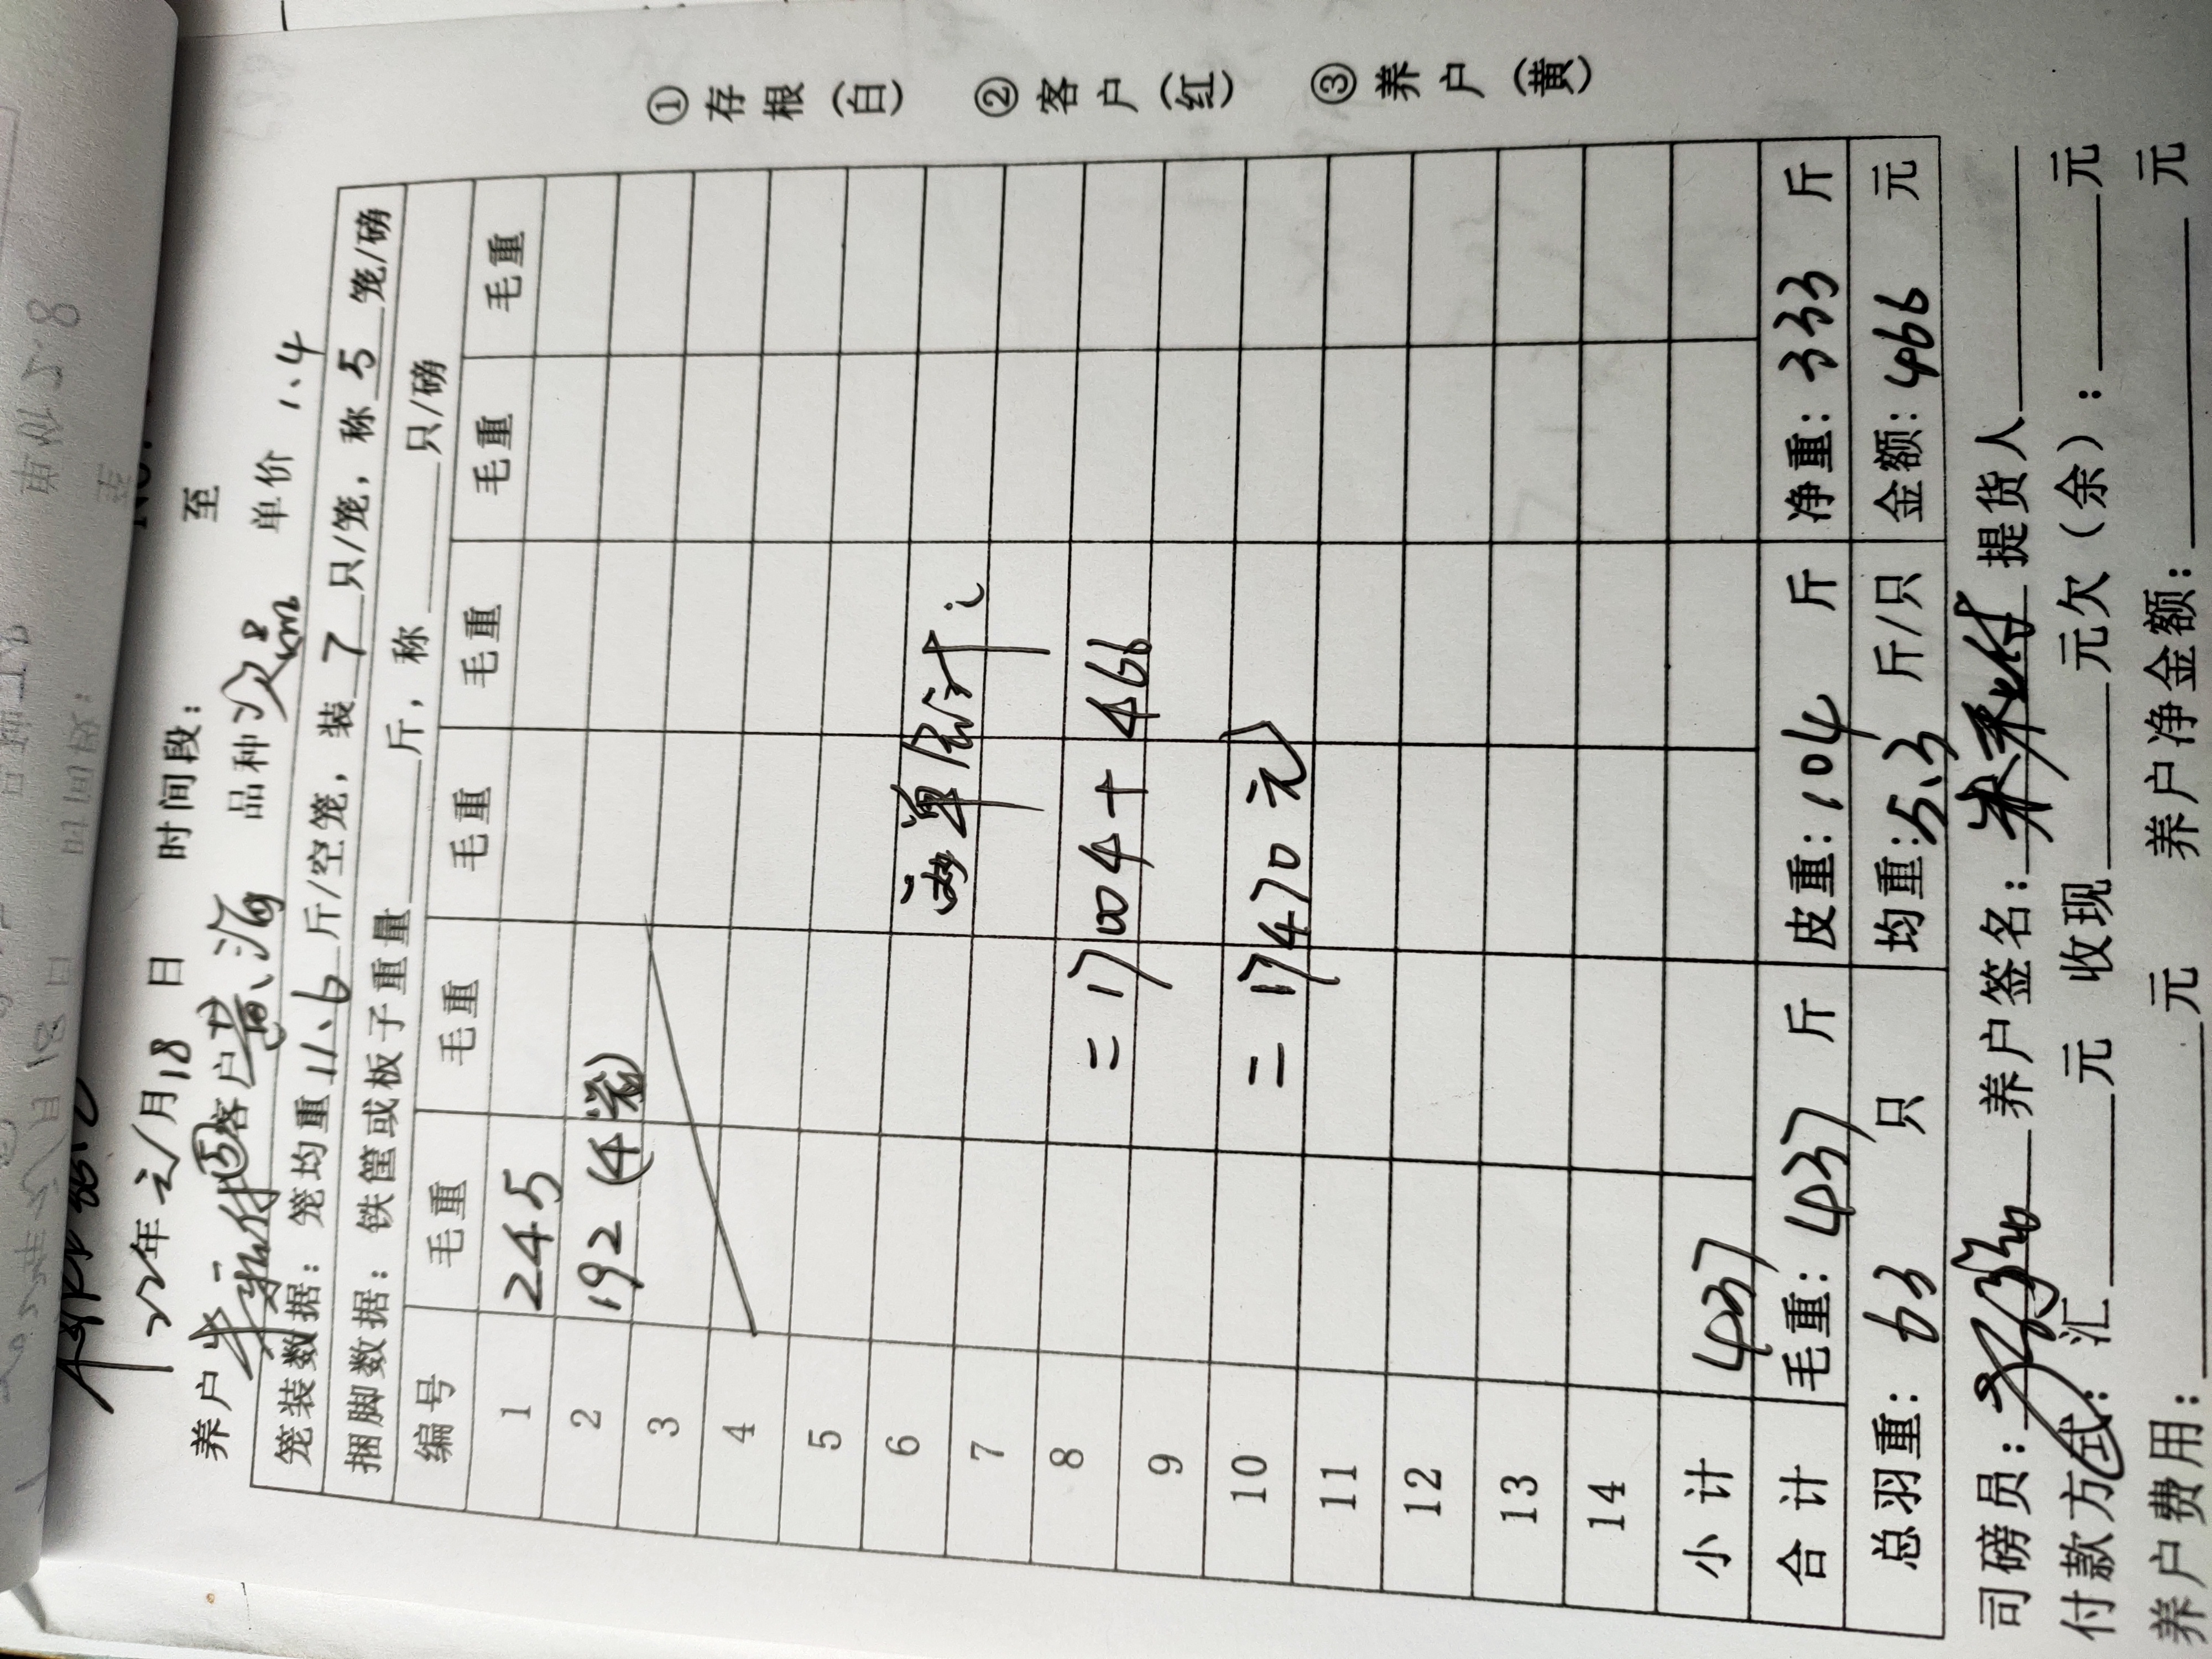 22年元/月18日 时间段： 至
养户 客户黄海 品种次品 单价 1.4
笼装数据：笼均重11.6斤/空笼，装7只/笼，称5笼/磅
捆脚数据：铁筐或板子重量 斤，称 只/磅
编号 毛重 毛重 毛重 毛重 毛重 毛重
1 245
2 192（4笼）
3
4
5
6 两单合计：
7
8 =17004+466
9
10 =17470元
11
12
13
14
小计 437
合计 毛重：437斤 皮重：104斤 净重：333斤
总羽重：63只 均重：5.3斤/只 金额：466元
司磅员： 养户签名： 提货人
付款方式：汇 元 收现 元欠（余）： 元
养户费用： 元 养户净金额： 元
①存根（白） ②客户（红） ③养户（黄）